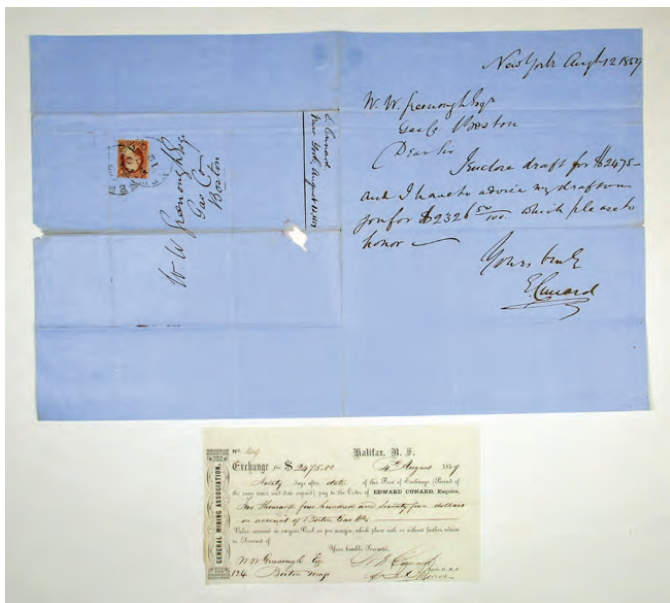 New York Augt 12 1859
W. W. Greenough Esqr
Gas Co Boston
Dear Sir
I enclose draft for $2475-
and I have to advise my draft on
you for $2326 50/100 which please to
honor
Yours truly
E Cunard
E Cunard
New York August 12, 1859
W. W. Greenough Esq.
Gas Co
Boston
GENERAL MINING ASSOCIATION.
No.
Halifax, N. S.
Exchange for $2475.00 4th August 1859
Ninety days after date of this First of Exchange (Second of
the same tenor and date unpaid) pay to the Order of EDWARD CUNARD, Esquire,
Two thousand four hundred and seventy five dollars
on account of Boston Gas
Value received in cargoes Coal as per margin, which place with or without further advice
to Account of
Your humble Servant,
W W Greenough Esq
124 Boston